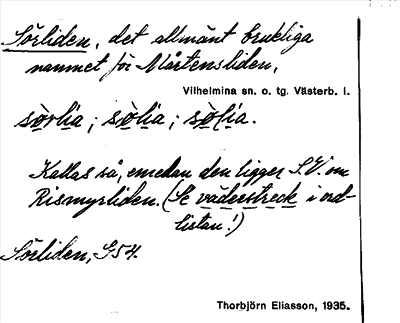 Sörliden, det allmänt brukliga
namnet för Mårtensliden,
Vilhelmina sn. o. tg. Västerb. l.
sòrlia; sòlia; sòlia.
Kallas så, emedan den ligger S.V. om
Rismyrliden. (Se väderstreck i ord-
listan!)
Sörliden, G54.
Thorbjörn Eliasson, 1935.